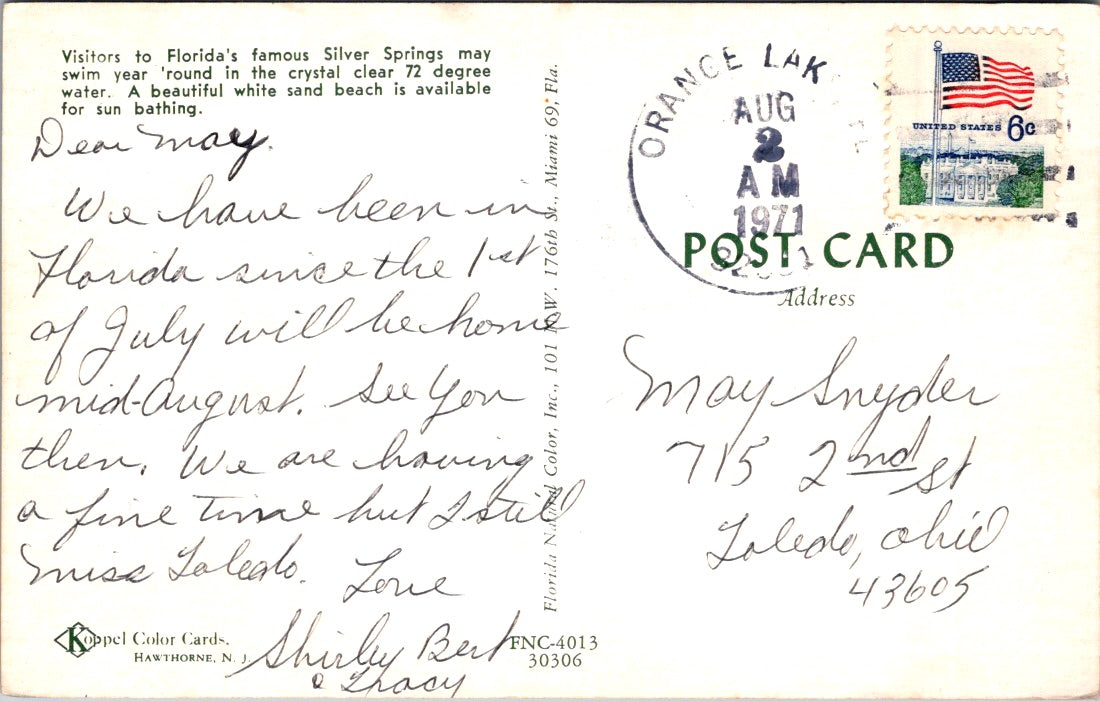 Visitors to Florida's famous Silver Springs may
swim year 'round in the crystal clear 72 degree
water. A beautiful white sand beach is available
for sun bathing.
Dear May.
We have been in
Florida since the 1st
of July will be home
mid-August. See You
then. We are having
a fine time but I still
miss Toledo. Love
Shirley Bert
& Tracy
Koppel Color Cards.
HAWTHORNE, N. J.
FNC-4013
30306
Florida Natural Color, Inc., 101 N.W. 176th St., Miami 69, Fla.
ORANGE LAK
AUG
2
AM
1971
UNITED STATES 6c
POST CARD
Address
May Snyder
715 2nd St
Toledo, Ohio
43605